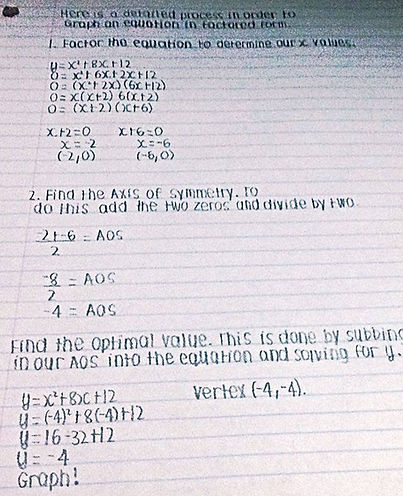 Here is a detailed process in order to
Graph an equation in factored form.
1. Factor the equation to determine our x values.
y=x²+8x+12
0= x²+6x+2x+12
0= (x²+2x)(6x+12)
0= x(x+2) 6(x+2)
0= (x+2)(x+6)
x+2=0 x+6=0
x=-2 x=-6
(-2,0) (-6,0)
2. Find the Axis of symmetry. To
do this add the two zeros and divide by two
-2+-6 = AOS
2
-8 = AOS
2
-4 = AOS
Find the optimal value. This is done by subbing
in our AOS into the equation and solving for y.
y=x²+8x+12 vertex (-4,-4).
y=(-4)²+8(-4)+12
y=16-32+12
y=-4
Graph!